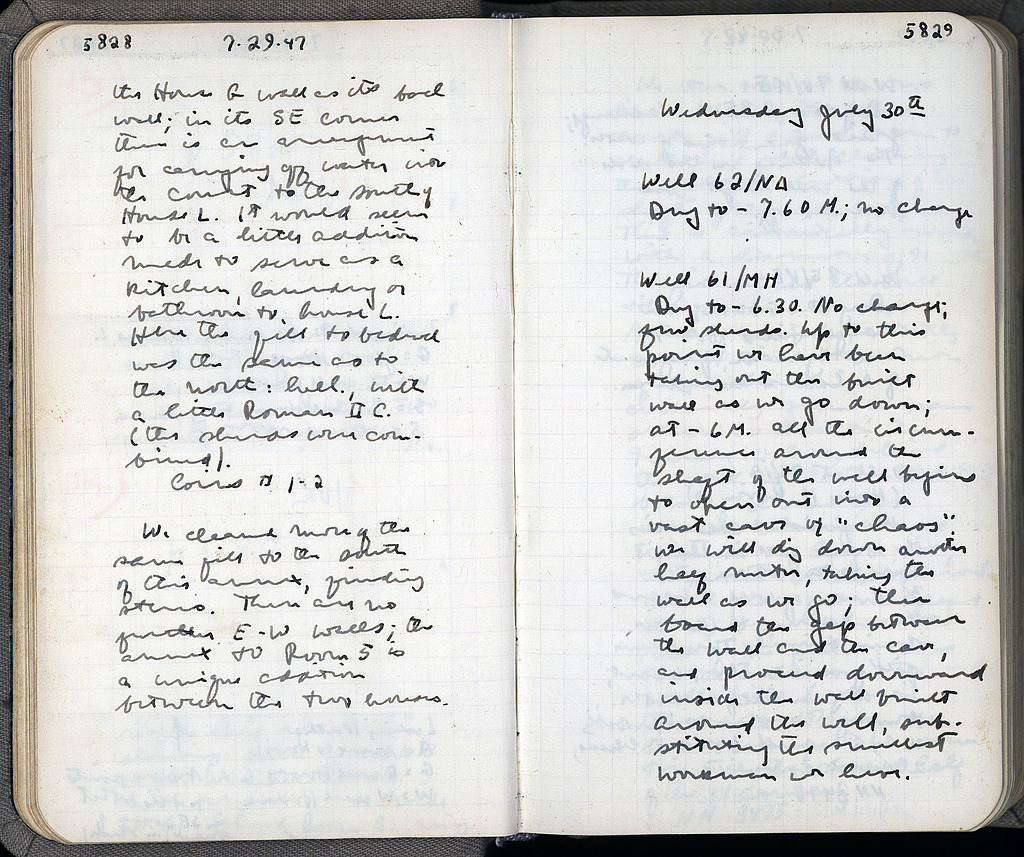 5828 7.29.47
the House Q wall as its back
wall; in its SE corner
there is an arrangement
for carrying off water into
the court to the south of
House L. It would seem
to be a little addition
made to serve as a
kitchen, laundry or
bathroom to house L.
Here the fill to bedrock
was the same as to
the north: hell., with
a little Roman II C.
(the sherds were com-
bined).
Coins # 1-2
We cleared more of the
same fill to the south
of this annex, finding
stereo. There are no
further E-W walls; the
annex to Room 5 is
a unique addition
between the two houses.
5829
Wednesday July 30th
Well 62/ΝΔ
Dug to - 7.60 M.; no change
Well 61/ΜΗ
Dug to - 6.30. No change;
few sherds. Up to this
point we have been
taking out the built
wall as we go down;
at - 6 M. all the circum-
ference around the
shaft of the well begins
to open out into a
vast cave of "chaos";
we will dig down another
half meter, taking the
wall as we go; then
board the gap between
the wall and the cave,
and proceed downward
inside the wall built
around the well, sub-
stituting the smallest
workman we have.